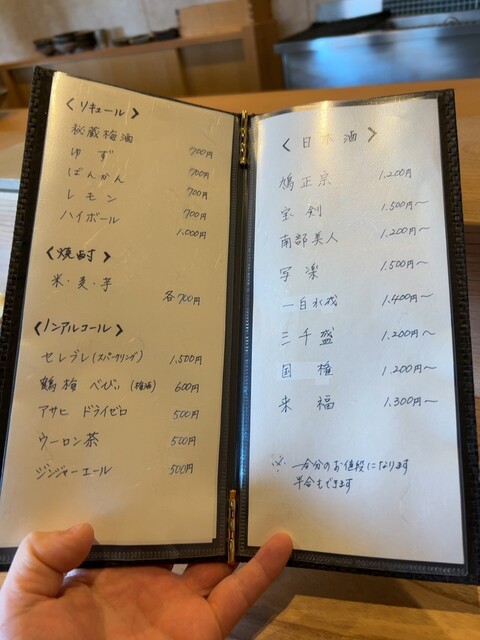 〈リキュール〉
秘蔵梅酒 700円
ゆず 700円
ぽんかん 700円
レモン 700円
ハイボール 1,000円
〈焼酎〉
米・麦・芋 各700円
〈ノンアルコール〉
セレブレ(スパークリング) 1,500円
鶴梅 べびぃ(梅酒) 600円
アサヒ ドライゼロ 500円
ウーロン茶 500円
ジンジャーエール 500円
〈日本酒〉
鳩正宗 1,200円
宝剣 1,500円〜
南部美人 1,200円〜
写楽 1,500円〜
一白水成 1,400円〜
三千盛 1,200円〜
国権 1,200円〜
来福 1,300円〜
※ 一合分のお値段になります
半合もできます